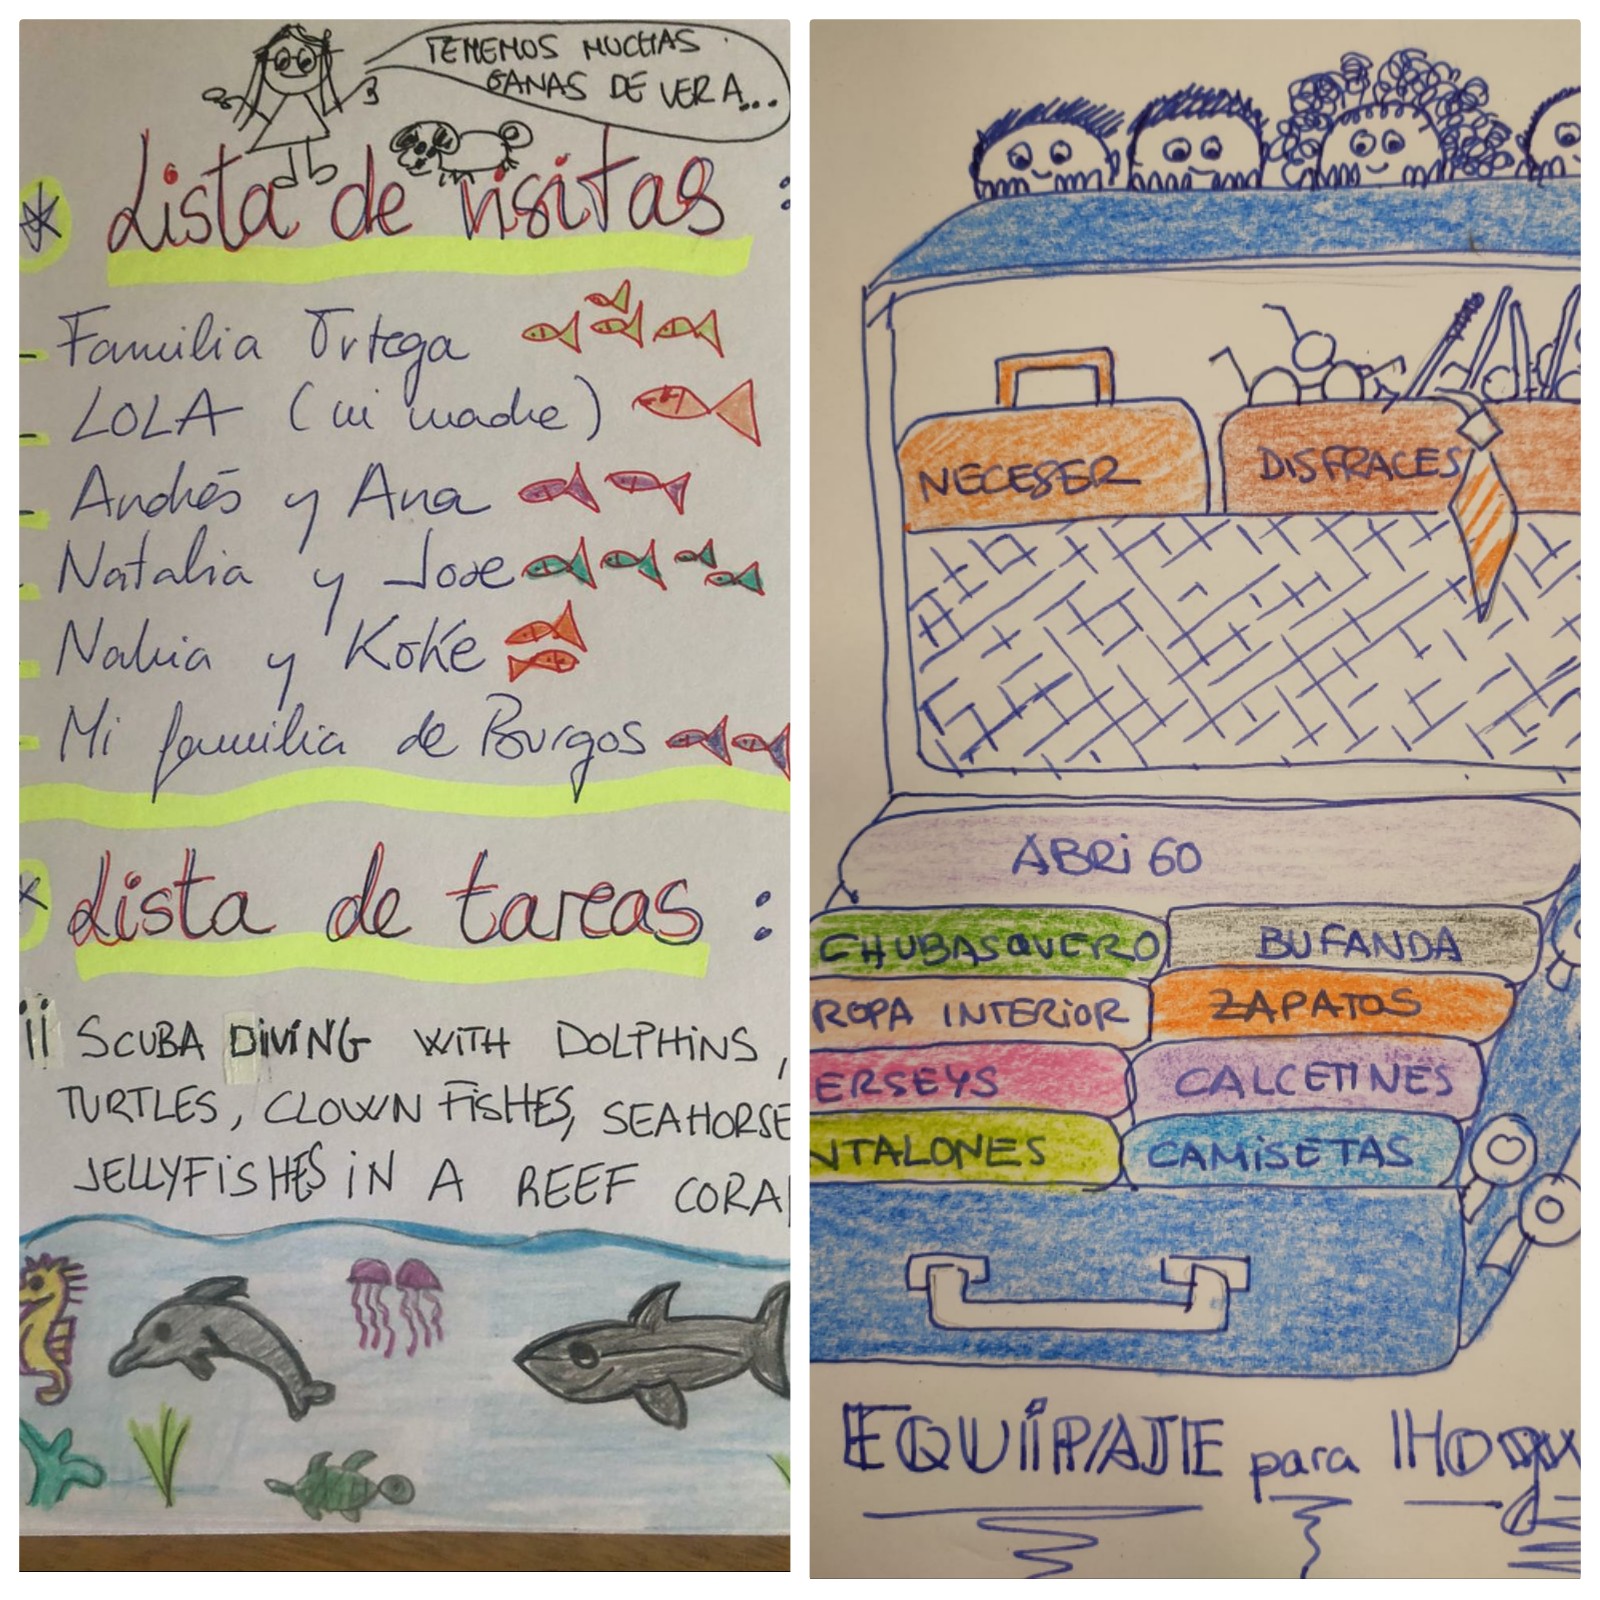 TENEMOS MUCHAS
GANAS DE VER A...
Lista de visitas :
- Familia Ortega
- LOLA (mi madre)
- Andrés y Ana
- Natalia y Jose
- Nahia y Koke
- Mi familia de Burgos
Lista de tareas :
¡¡ SCUBA DIVING WITH DOLPHINS,
TURTLES, CLOWN FISHES, SEAHORSE
JELLYFISHES IN A REEF CORA
NECESER
DISFRACES
ABRIGO
CHUBASQUERO
BUFANDA
ROPA INTERIOR
ZAPATOS
ERSEYS
CALCETINES
NTALONES
CAMISETAS
EQUIPAJE para